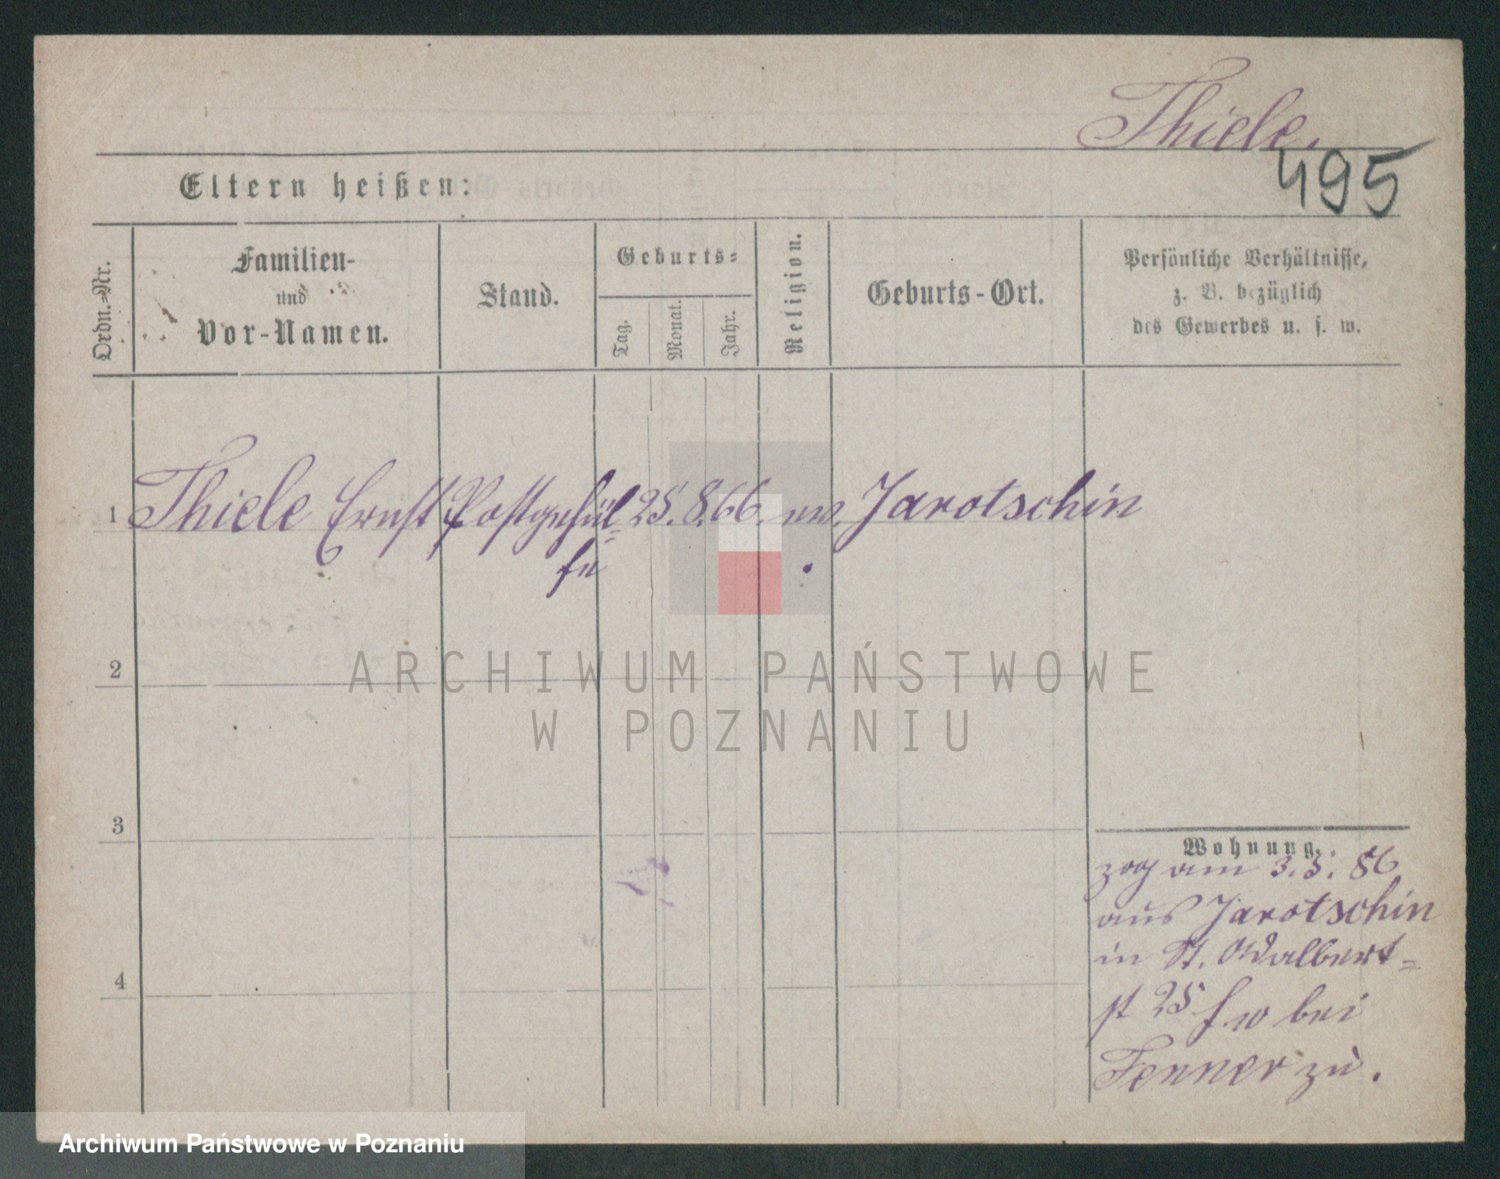 Thiele.
495
Eltern heißen:
Ordn.-Nr.
Familien-
und
Vor-Namen.
Stand.
Geburts-
Tag.
Monat.
Jahr.
Religion.
Geburts-Ort.
Persönliche Verhältnisse,
z. B. bezüglich
des Gewerbes u. s. w.
1 Thiele Ernst Postgehül- 25. 8. 66. ev. Jarotschin
fe
2
ARCHIWUM PAŃSTWOWE
W POZNANIU
3
Wohnung.
zog am 3.5. 86
aus Jarotschin
in St. Adalbert-
4
st 25 bei
Fenner zu.
Archiwum Państwowe w Poznaniu